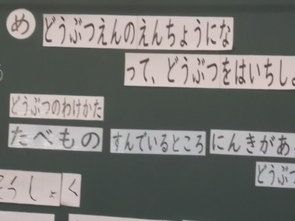 め どうぶつえんのえんちょうにな
って、どうぶつをはいちし
どうぶつのわけかた
たべもの すんでいるところ にんきがあ
どうぶ
そうしょく